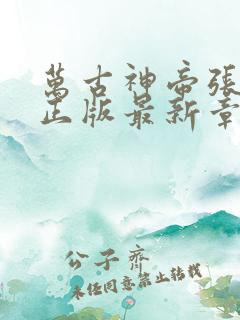 萬古神帝張
正版最新章
公子齊
未經同意禁止轉載